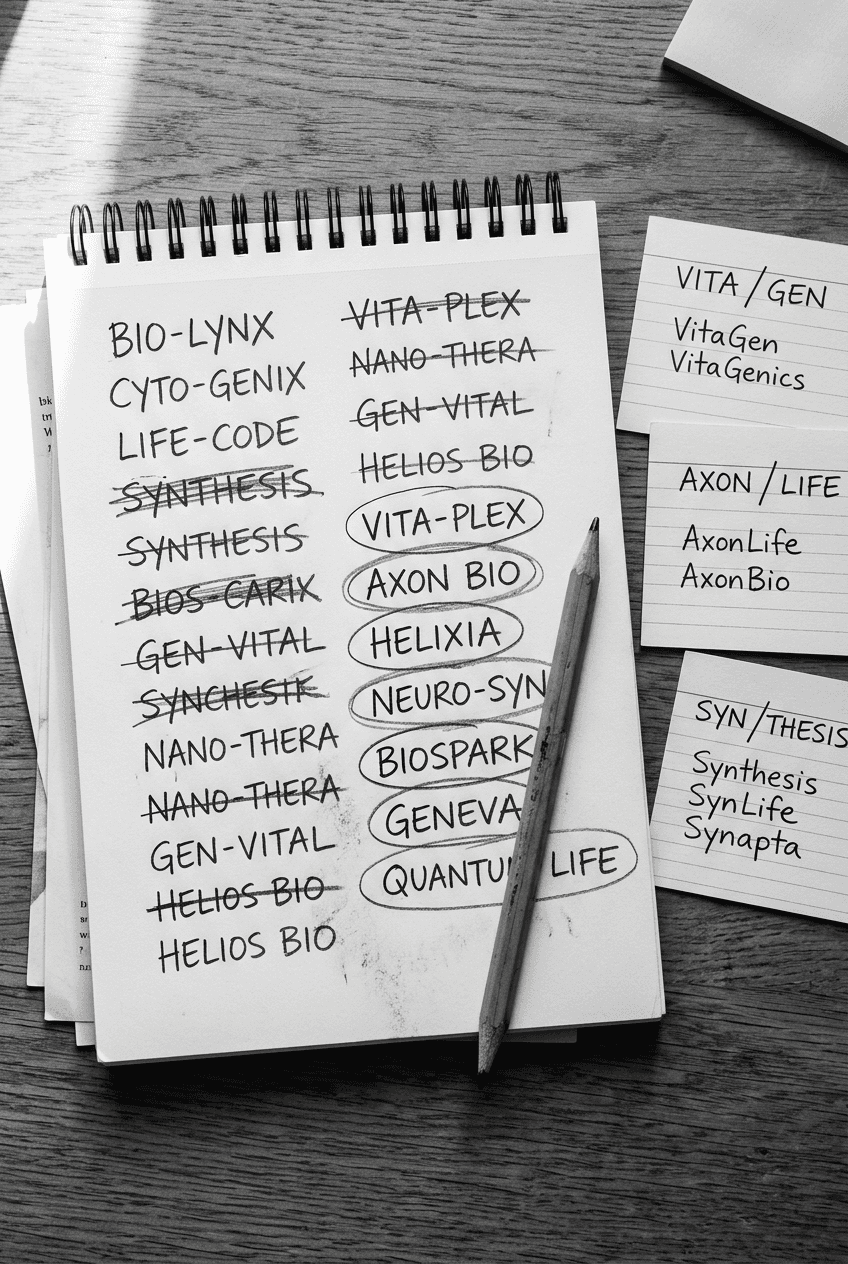 BIO-LYNX
CYTO-GENIX
LIFE-CODE
SYNTHESIS
SYNTHESIS
BIOS-CARIX
GEN-VITAL
SYNCHESIK
NANO-THERA
NANO-THERA
GEN-VITAL
HELIOS BIO
HELIOS BIO
VITA-PLEX
NANO-THERA
GEN-VITAL
HELIOS BIO
VITA-PLEX
AXON BIO
HELIXIA
NEURO-SYN
BIOSPARK
GENEVA
LIFE
VITA/GEN
VitaGen
VitaGenics
AXON/LIFE
AxonLife
AxonBio
SYN/THESIS
Synthesis
SynLife
Synapta